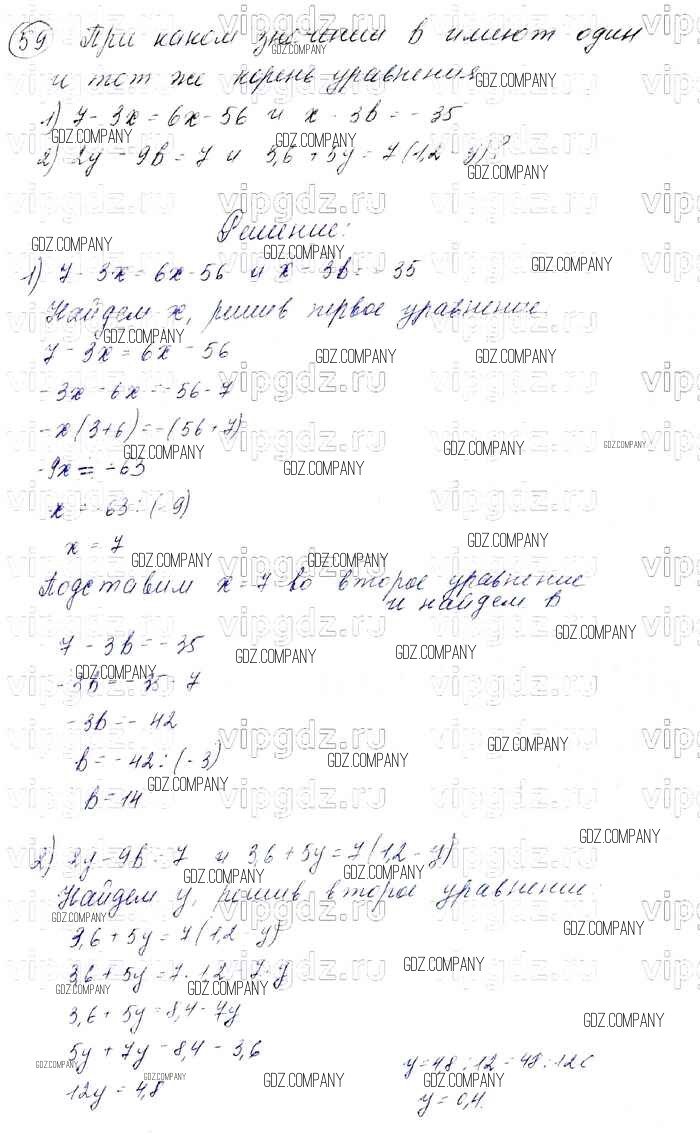 59 При каком значении в имеют один
и тот же корень уравнения
1) 7 - 3x = 6x - 56 и x - 3в = - 35
2) 2y - 9в = 7 и 3,6 + 5y = 7 (1,2 - y)?
Решение:
1) 7 - 3x = 6x - 56 и x - 3в = - 35
Найдем x, решив первое уравнение
7 - 3x = 6x - 56
- 3x - 6x = - 56 - 7
- x (3 + 6) = - (56 + 7)
- 9x = - 63
x = - 63 : (- 9)
x = 7
Подставим x = 7 во второе уравнение
и найдем в
7 - 3в = - 35
- 3в = - 35 - 7
- 3в = - 42
в = - 42 : (- 3)
в = 14
2) 2y - 9в = 7 и 3,6 + 5y = 7 (1,2 - y)
Найдем y, решив второе уравнение:
3,6 + 5y = 7 (1,2 - y)
3,6 + 5y = 7 · 1,2 - 7 · y
3,6 + 5y = 8,4 - 7y
5y + 7y = 8,4 - 3,6
12y = 4,8
y = 4,8 : 12 = 48 : 120
y = 0,4.
GDZ.COMPANY
vipgdz.ru